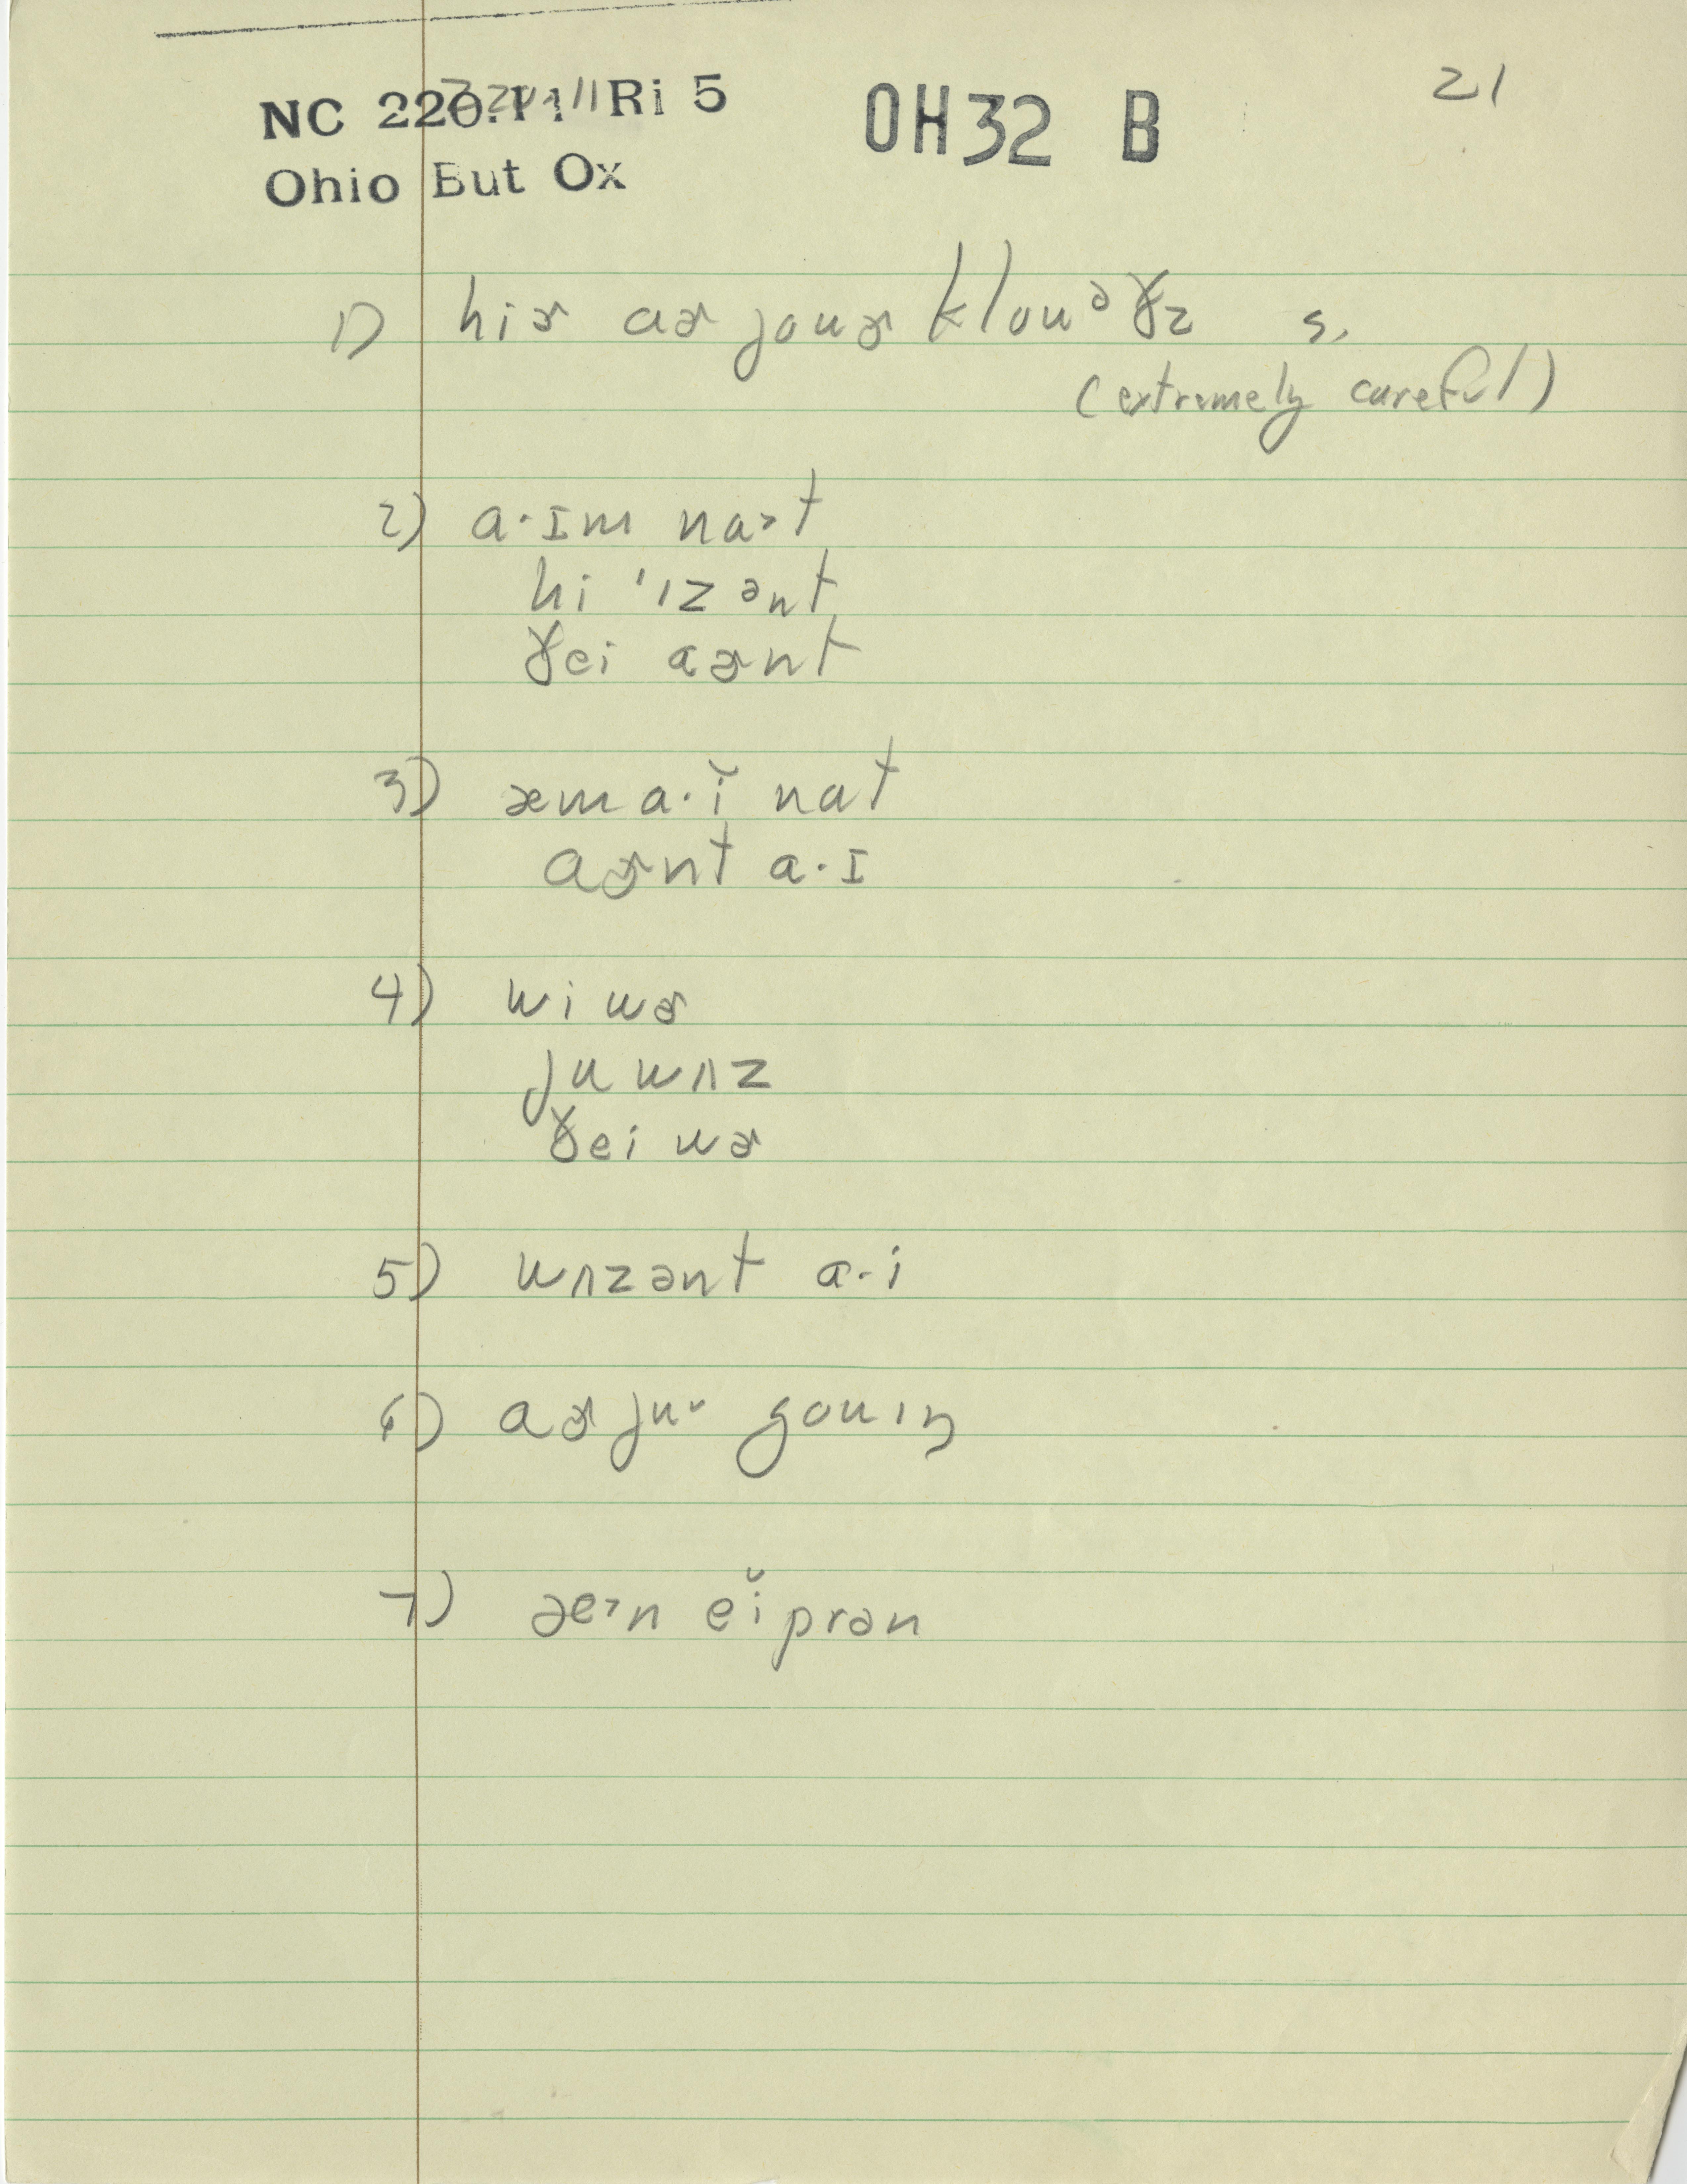 NC 220.11 Ri 5
OH32 B
21
Ohio But Ox
1) hiɚ aɚ jouɚ klouᵊðz s.
(extremely careful)
2) a·ɪm na˃t
hi 'ɪzənt
ðei aɚnt
3) æm a·ĭ nat
aɚnt a·ɪ
4) wi wɚ
ju wʌz
ðei wɚ
5) wʌzənt a·i
6) aɚ ju˅ gouɪŋ
7) æ˃n eĭprən